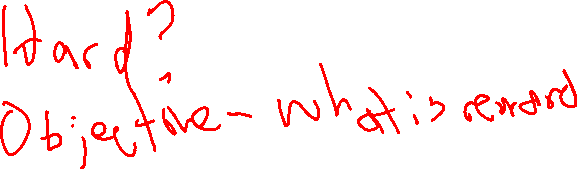 Hard?
Objective - what is reward